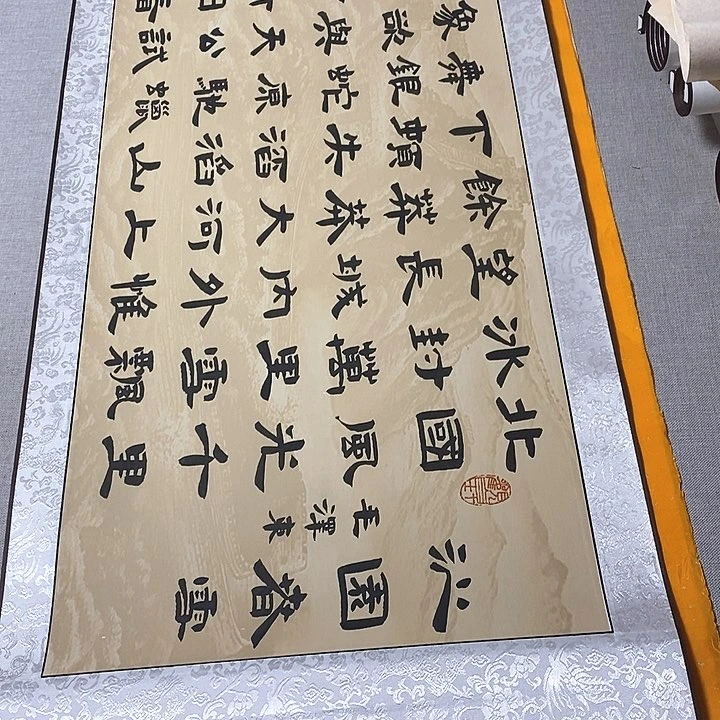 沁園春雪
毛澤東
北國風光千里
冰封萬里雪飄
望長城內外惟
餘莽莽大河上
下頓失滔滔山
舞銀蛇原馳蠟
象欲與天公試